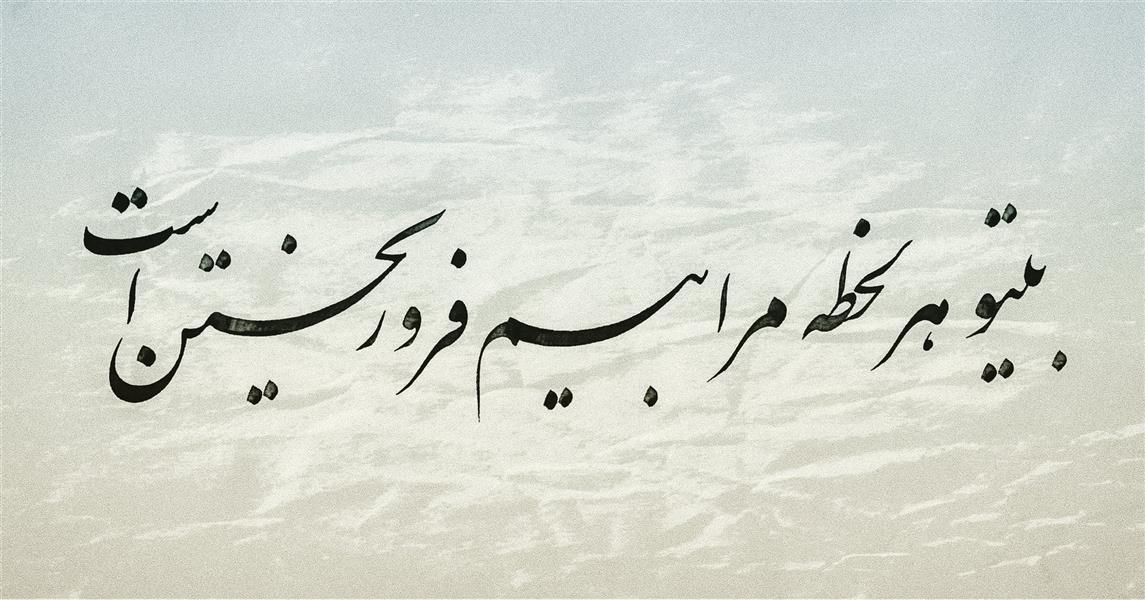 بیتو هر لحظه مرا بیم فرو ریختن است